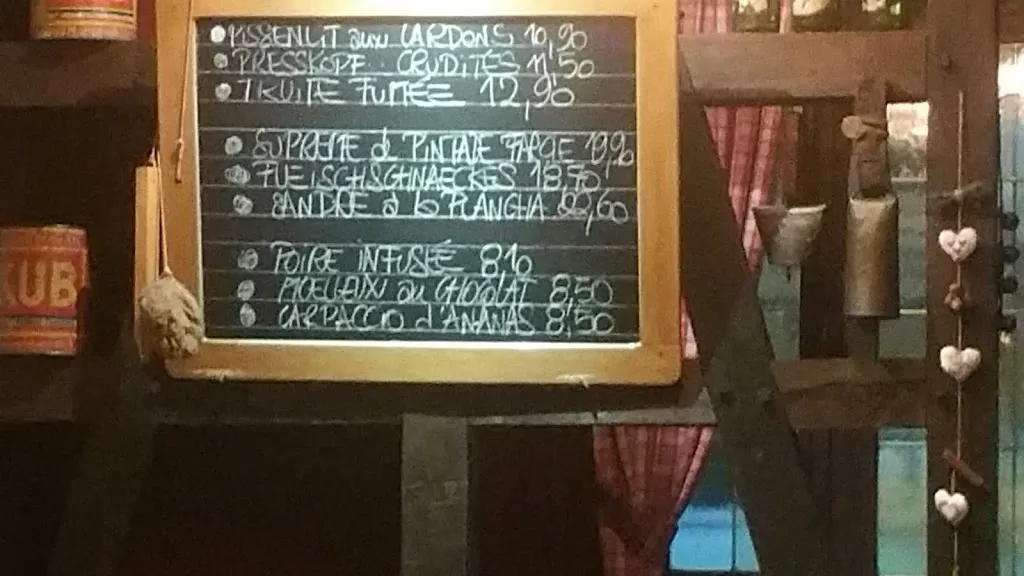 PISSENLIT aux LARDONS 10,90
PRESSKOPF CRUDITÉS 11,50
TRUITE FUMÉE 12,90
SUPREME de PINTADE FARCIE 19,90
FLEISCHSCHNAECKES 18,70
SANDRE à la PLANCHA 22,60
POIRE INFUSÉE 8,10
MOELLEUX au CHOCOLAT 8,50
CARPACCIO d'ANANAS 8,50
KUB